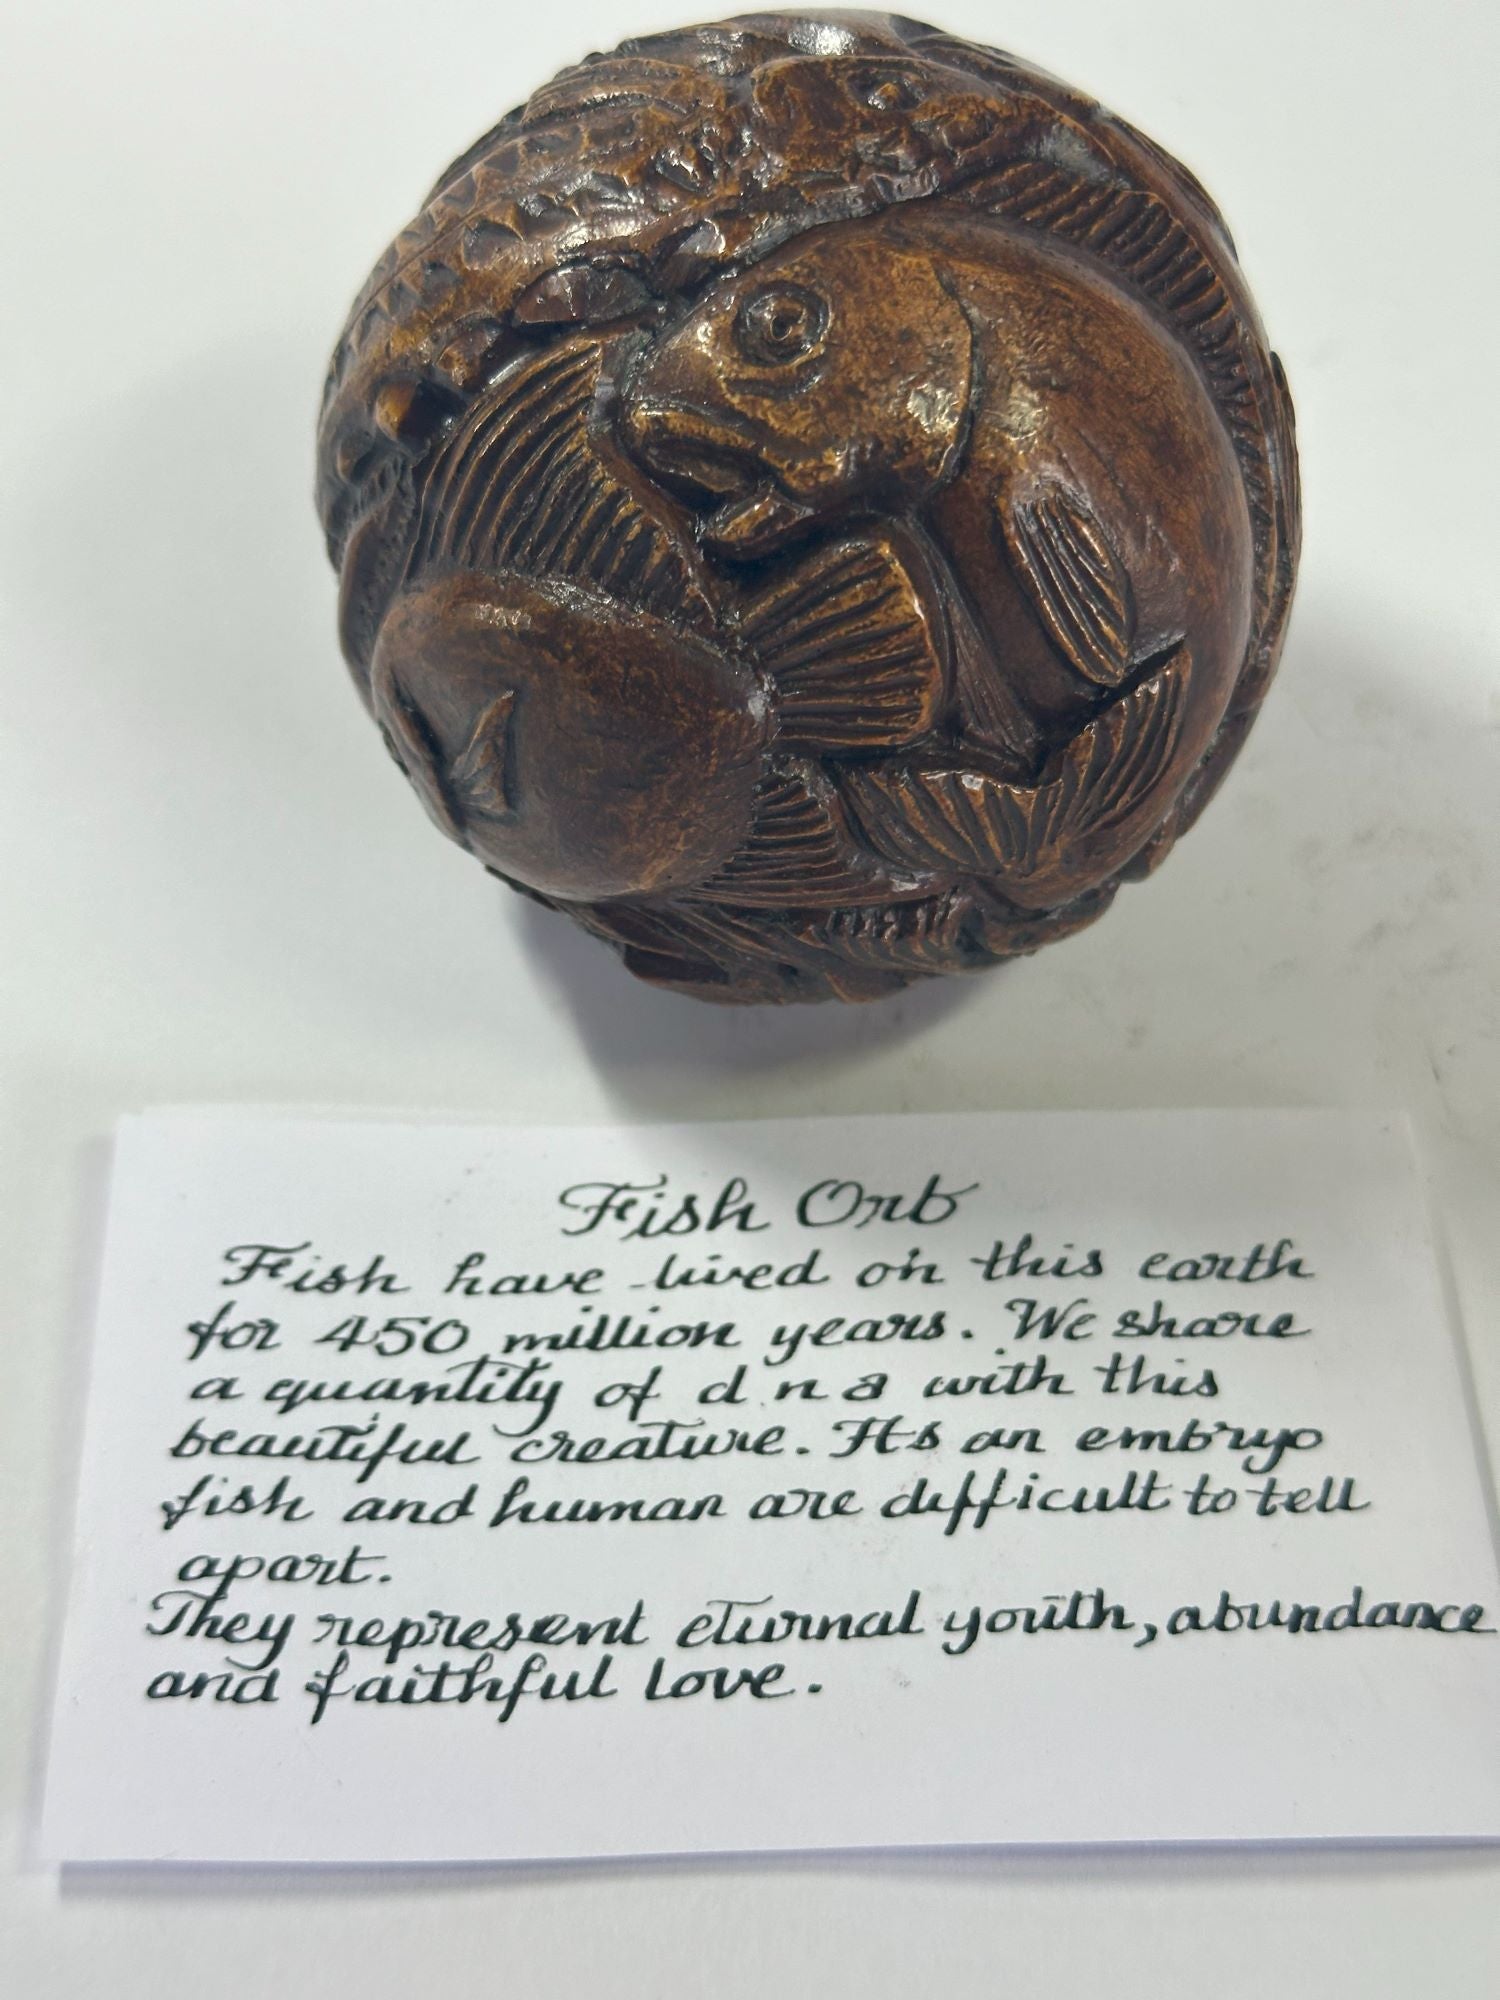 Fish Orb
Fish have lived on this earth
for 450 million years. We share
a quantity of d.n a with this
beautiful creature. Its an embryo
fish and human are difficult to tell
apart.
They represent eturnal youth, abundance
and faithful love.